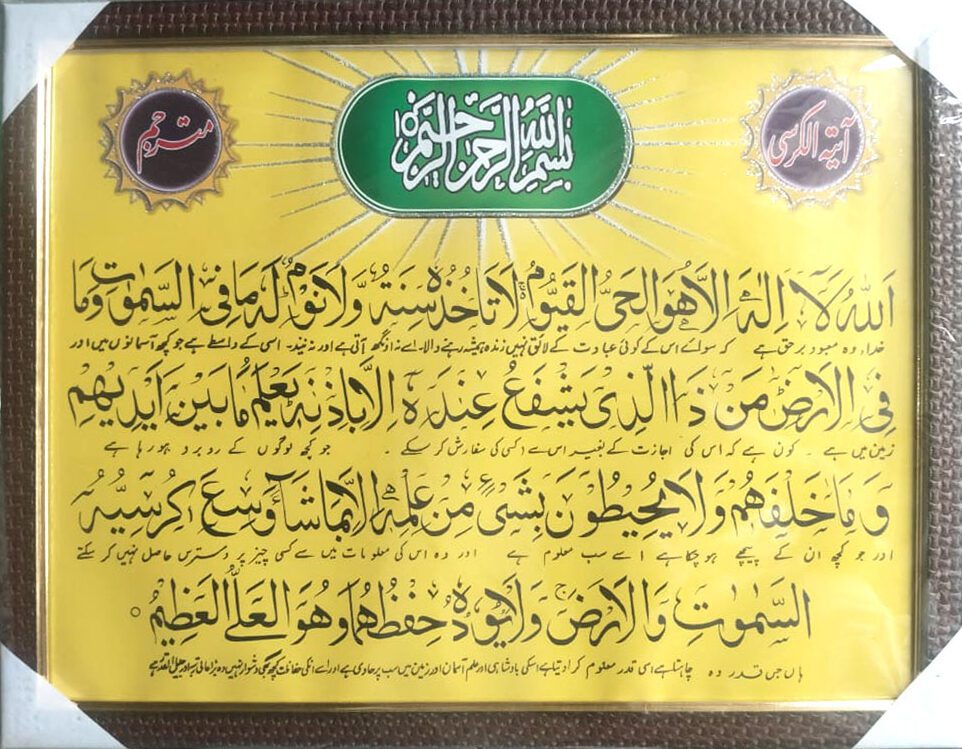 آیۃ الکرسی
بِسْمِ اللهِ الرَّحْمٰنِ الرَّحِيْمِ
مترجم
اَللهُ لَآ اِلٰهَ اِلَّا هُوَ الْحَیُّ الْقَیُّوْمُ لَا تَاْخُذُهٗ سِنَةٌ وَّلَا نَوْمٌ لَهٗ مَا فِی السَّمٰوٰتِ وَمَا
خدا وہ معبود برحق ہے کہ سوائے اس کے کوئی عبادت کے لائق نہیں زندہ ہمیشہ رہنے والا۔ اسے نہ اونگھ آتی ہے اور نہ نیند۔ اسی کے واسطے ہے جو کچھ آسمانوں میں اور
فِی الْاَرْضِ مَنْ ذَا الَّذِیْ یَشْفَعُ عِنْدَهٗ اِلَّا بِاِذْنِهٖ یَعْلَمُ مَا بَیْنَ اَیْدِیْهِمْ
زمین میں ہے ۔ کون ہے کہ اس کی اجازت کے بغیر اس سے کسی کی سفارش کر سکے ۔ جو کچھ لوگوں کے روبرو ہو رہا ہے
وَمَا خَلْفَهُمْ وَلَا یُحِیْطُوْنَ بِشَیْءٍ مِّنْ عِلْمِهٖ اِلَّا بِمَا شَآءَ وَسِعَ كُرْسِیُّهُ
اور جو کچھ ان کے پیچھے ہو چکا ہے اسے سب معلوم ہے اور وہ اس کی معلومات میں سے کسی چیز پر دسترس حاصل نہیں کر سکتے
السَّمٰوٰتِ وَالْاَرْضَ وَلَا یَئُوْدُهٗ حِفْظُهُمَا وَهُوَ الْعَلِیُّ الْعَظِیْمُ ○
ہاں جس قدر وہ چاہتا ہے اسی قدر معلوم کرا دیتا ہے اسکی بادشاہی اور علم آسمان اور زمین میں سب پر حاوی ہے اور اسے انکی حفاظت کچھ بھی دشوار نہیں وہ بڑا عالی رتبہ اور جلیل القدر ہے